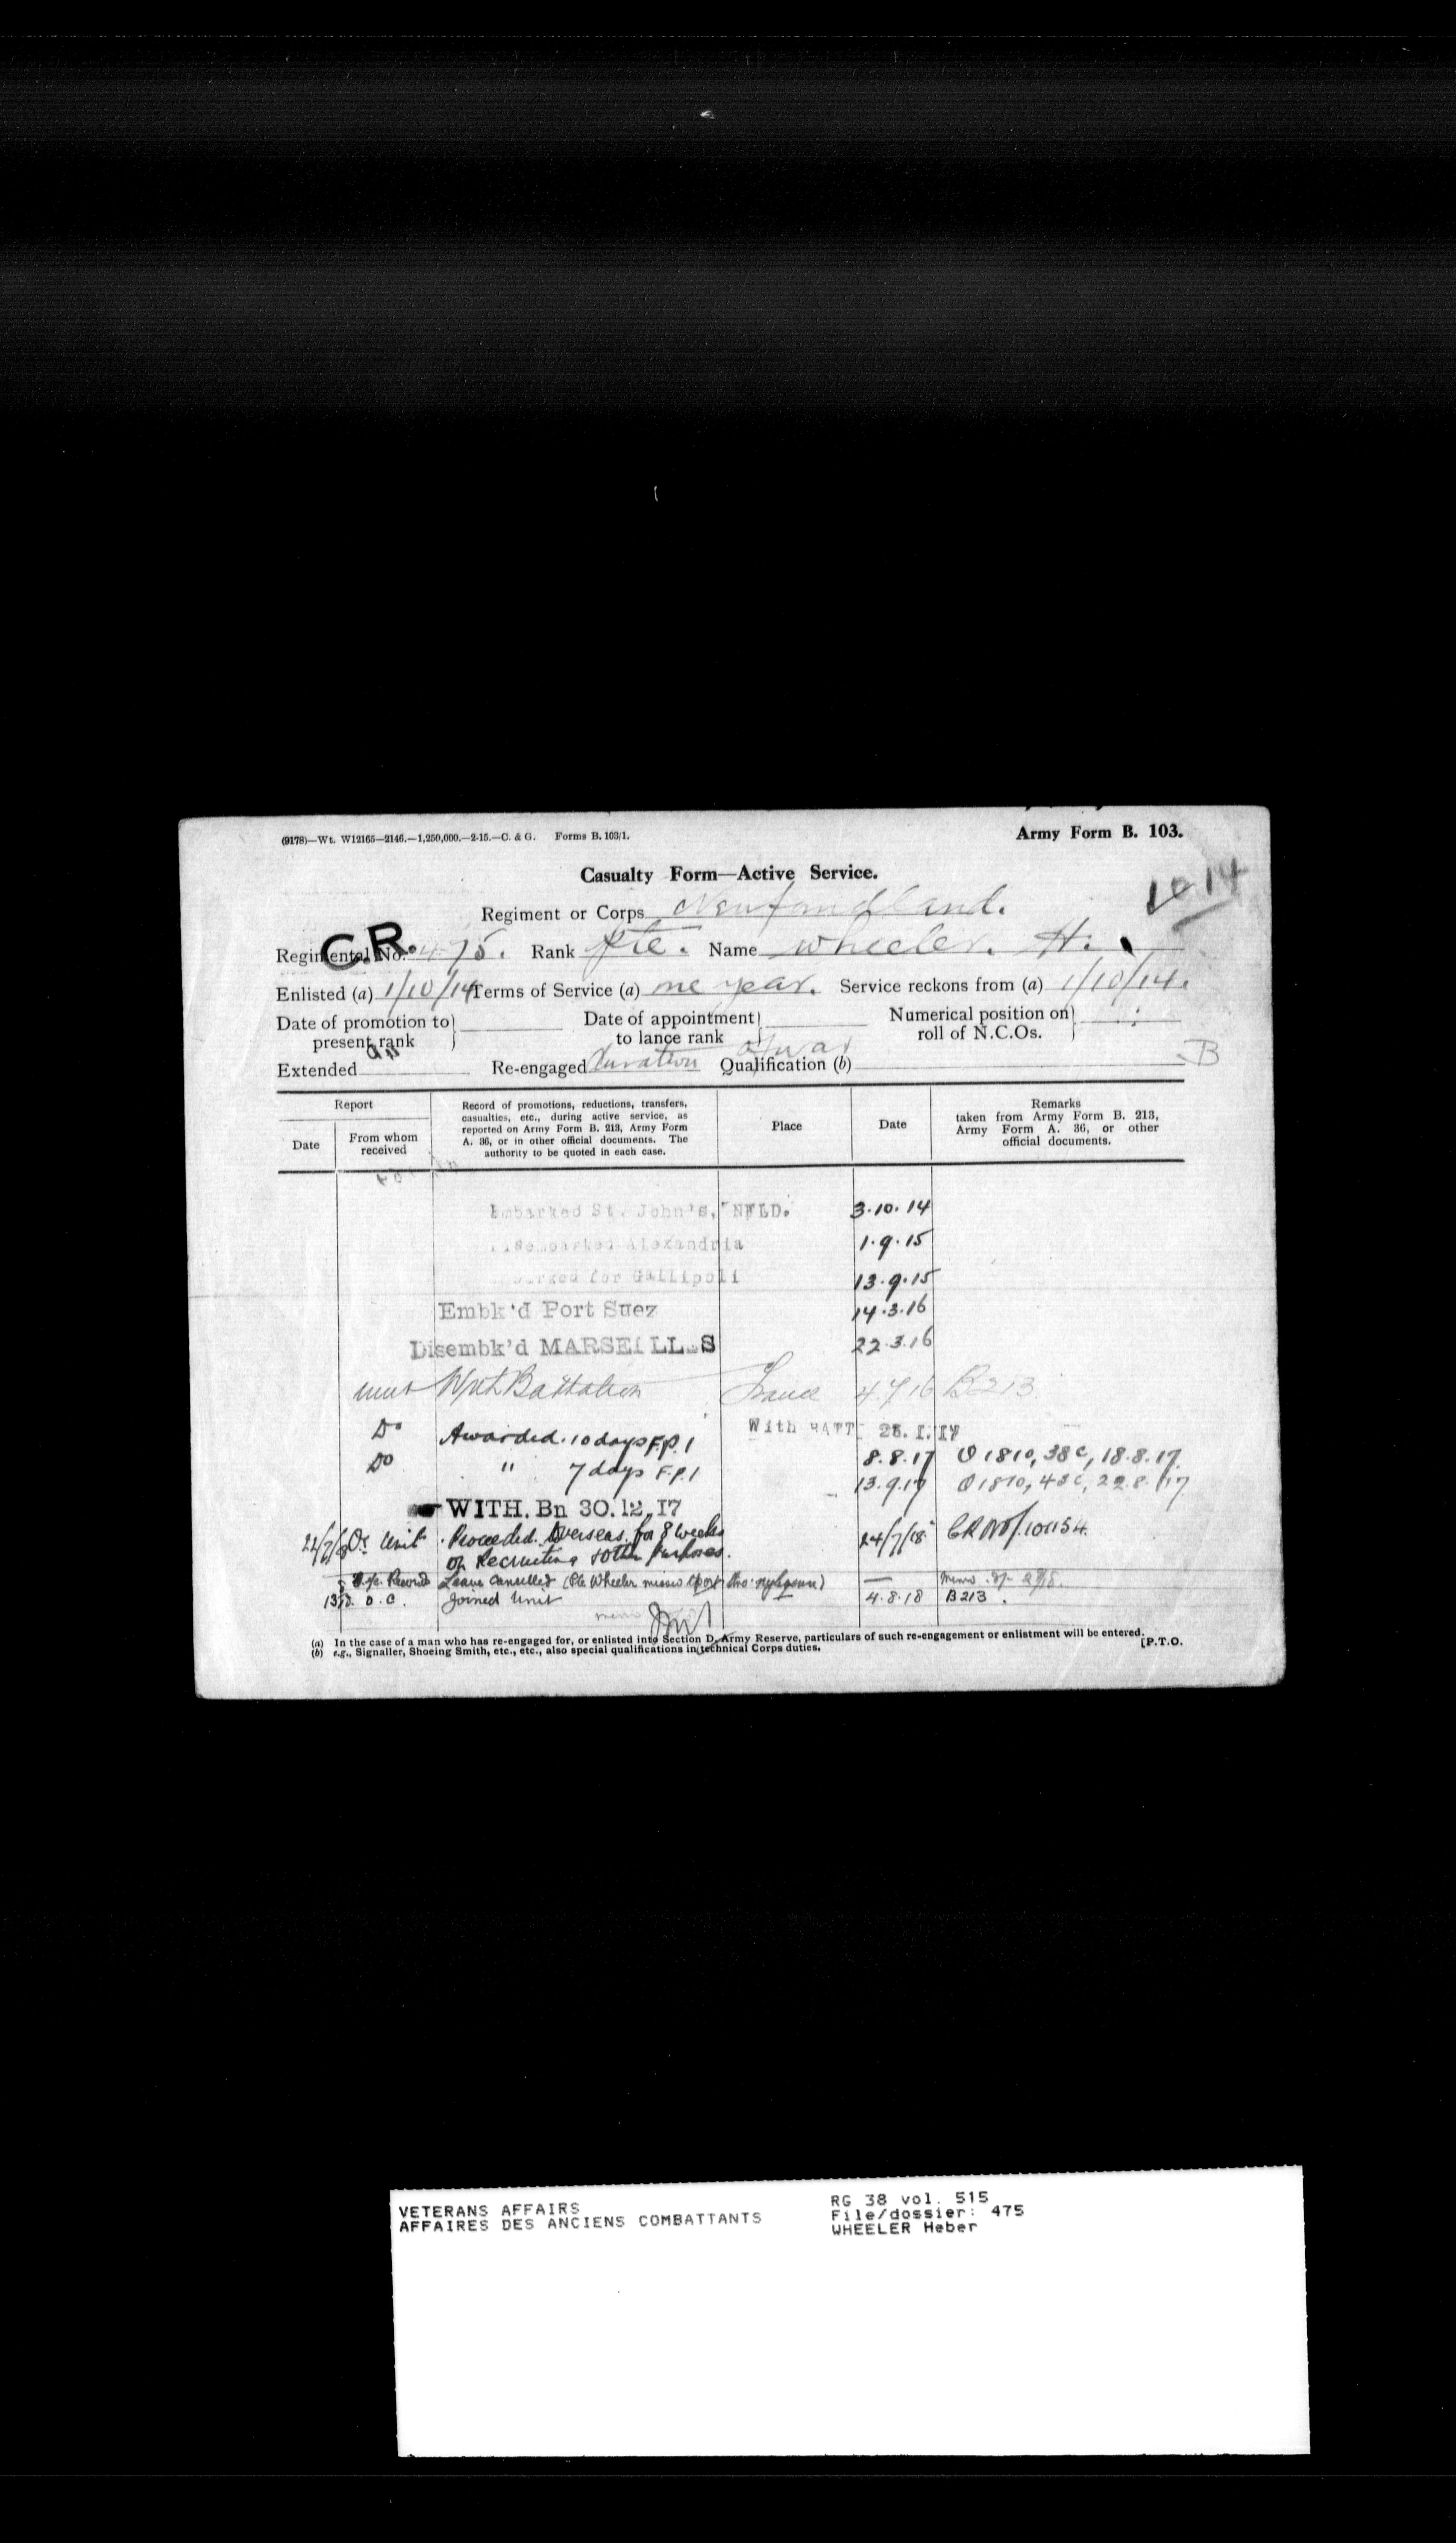 (9178)—Wt. W12165—2146.—1,250,000.—2-15.—C. & G. Forms B. 103/1.
Army Form B. 103.
Casualty Form—Active Service.
14
Regiment or Corps Newfoundland.
C.R.
Regimental No. 475. Rank Pte. Name Wheeler. H.
Enlisted (a) 1/10/14 Terms of Service (a) one year. Service reckons from (a) 1/10/14.
Date of promotion to present rank
Date of appointment to lance rank
Numerical position on roll of N.C.Os.
Extended Re-engaged Duration of war Qualification (b)
B
Report
Date
From whom received
Record of promotions, reductions, transfers, casualties, etc., during active service, as reported on Army Form B. 213, Army Form A. 36, or in other official documents. The authority to be quoted in each case.
Place
Date
Remarks taken from Army Form B. 213, Army Form A. 36, or other official documents.
Embarked St. John's, NFLD. 3.10.14
Disembarked Alexandria 1.9.15
Embarked for Gallipoli 13.9.15
Embk'd Port Suez 14.3.16
Disembk'd MARSEILLES 22.3.16
Unit With Battalion France 4.7.16 B213.
With BATT
Do Awarded 10 days F.P.1 8.8.17 O1810, 38c, 18.8.17
Do " 7 days F.P.1 13.9.17 O1810, 43c, 22.8.17
WITH. Bn 30.12.17
Unit Proceeded Overseas for 8 weeks 24/7/18
on Recruiting & other purposes.
Records Leave Cancelled (Pte Wheeler missed —
O.C. Joined Unit 4.8.18 B213.
(a) In the case of a man who has re-engaged for, or enlisted into Section D, Army Reserve, particulars of such re-engagement or enlistment will be entered.
(b) e.g., Signaller, Shoeing Smith, etc., etc., also special qualifications in technical Corps duties.
[P.T.O.
VETERANS AFFAIRS
AFFAIRES DES ANCIENS COMBATTANTS
RG 38 vol. 515
File/dossier: 475
WHEELER Heber